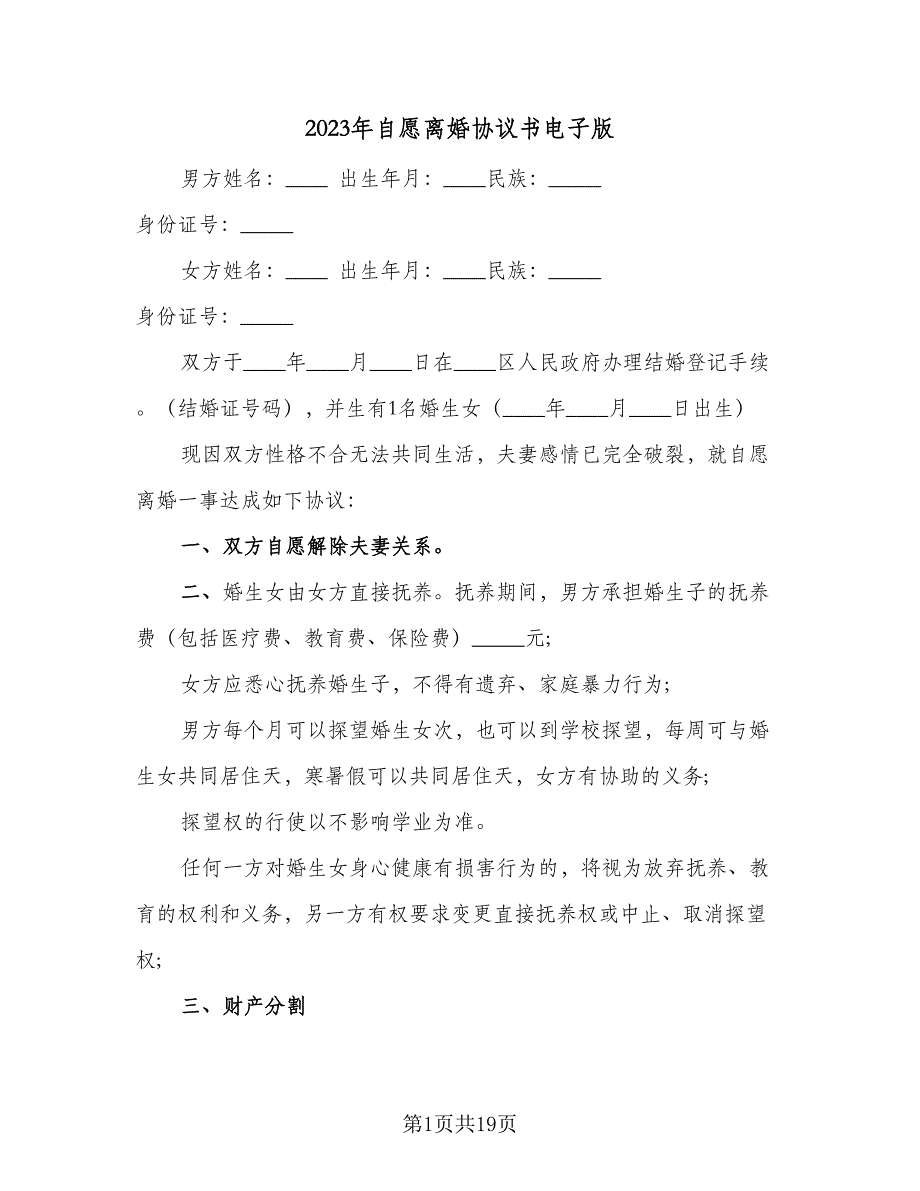 2023年自愿离婚协议书电子版
男方姓名：____ 出生年月：____民族：_____
身份证号：_____
女方姓名：____ 出生年月：____民族：_____
身份证号：_____
双方于____年____月____日在____区人民政府办理结婚登记手续
。（结婚证号码），并生有1名婚生女（____年____月____日出生）
现因双方性格不合无法共同生活，夫妻感情已完全破裂，就自愿
离婚一事达成如下协议：
一、双方自愿解除夫妻关系。
二、婚生女由女方直接抚养。抚养期间，男方承担婚生子的抚养
费（包括医疗费、教育费、保险费）_____元;
女方应悉心抚养婚生子，不得有遗弃、家庭暴力行为;
男方每个月可以探望婚生女次，也可以到学校探望，每周可与婚
生女共同居住天，寒暑假可以共同居住天，女方有协助的义务;
探望权的行使以不影响学业为准。
任何一方对婚生女身心健康有损害行为的，将视为放弃抚养、教
育的权利和义务，另一方有权要求变更直接抚养权或中止、取消探望
权;
三、财产分割
第1页共19页